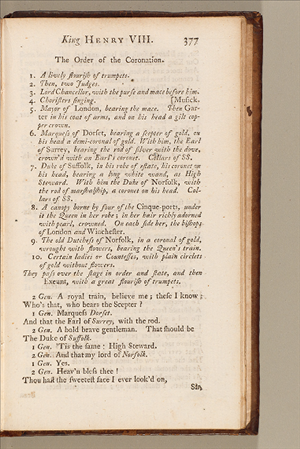 King HENRY VIII. 377
The Order of the Coronation.
1. A lively flouriſh of trumpets.
2. Then, two Judges.
3. Lord Chancellor, with the purſe and mace before him.
4. Choriſters ſinging. [Muſick.
5. Mayor of London, bearing the mace. Then Gar-
ter in his coat of arms, and on his head a gilt cop-
per crown.
6. Marqueſs of Dorſet, bearing a ſcepter of gold, on
his head a demi-coronal of gold. With him, the Earl
of Surrey, bearing the rod of ſilver with the dove,
crown'd with an Earl's coronet. Collars of SS.
7. Duke of Suffolk, in his robe of eſtate, his coronet on
his head, bearing a long white wand, as High
Steward. With him the Duke of Norfolk, with
the rod of marſhalſhip, a coronet on his head. Col-
lars of SS.
8. A canopy borne by four of the Cinque-ports, under
it the Queen in her robe; in her hair richly adorned
with pearl, crowned. On each ſide her, the biſhops
of London and Wincheſter.
9. The old Dutcheſs of Norfolk, in a coronal of gold,
wrought with flowers, bearing the Queen's train.
10. Certain ladies or Counteſſes, with plain circlets
of gold without flowers.
They paſs over the ſtage in order and ſtate, and then
Exeunt, with a great flouriſh of trumpets.
2 Gen. A royal train, believe me; theſe I know;
Who's that, who bears the Scepter?
1 Gen. Marqueſs Dorſet.
And that the Earl of Surrey, with the rod.
2 Gen. A bold brave gentleman. That ſhould be
The Duke of Suffolk.
1 Gen. 'Tis the ſame: High Steward.
2 Gen. And that my lord of Norfolk.
1 Gen. Yes.
2 Gen. Heav'n bleſs thee!
Thou haſt the ſweeteſt face I ever look'd on,